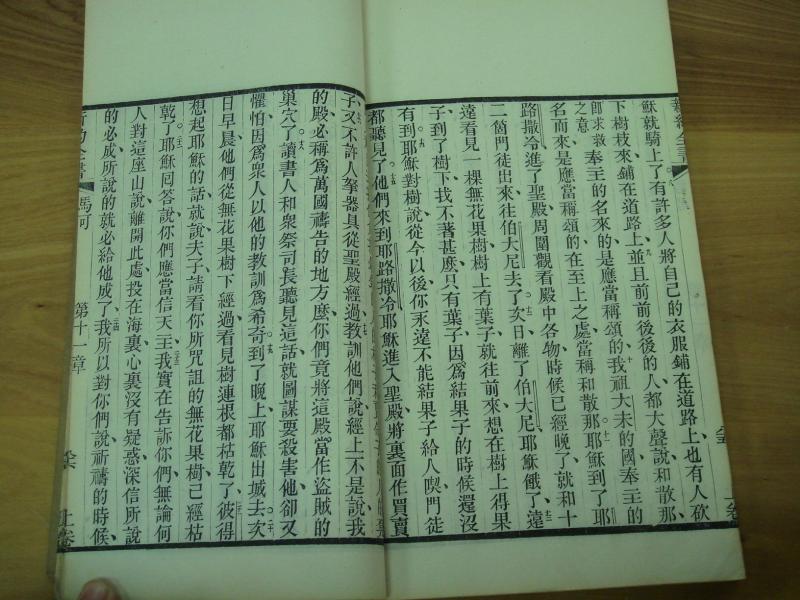 穌就騎上了有許多人將自己的衣服鋪在道路上也有人砍
下樹枝來鋪在道路上並且前前後後的人都大聲說和散那
卽求救之意奉主的名來的是應當稱頌的我祖大未的國奉主的
名而來是應當稱頌的在至上之處當稱和散那耶穌到了耶
路撒冷進了聖殿周圍觀看殿中各物時候已經晚了就和十
二個門徒出來往伯大尼去了次日離了伯大尼耶穌餓了遠
遠看見一棵無花果樹樹上有葉子就往前來想在樹上得果
子到了樹下找不著甚麼只有葉子因爲結果子的時候還沒
有到耶穌對樹說從今以後你永遠不能結果子給人喫門徒
都聽見了他們來到耶路撒冷耶穌進入聖殿將裏面作買賣
子又不許人拏器具從聖殿經過教訓他們說經上不是說我
的殿必稱爲萬國禱告的地方麼你們竟將這殿當作盜賊的
巢穴了讀書人和衆祭司長聽見這話就圖謀要殺害他卻又
懼怕因爲衆人以他的教訓爲希奇到了晚上耶穌出城去次
日早晨他們從無花果樹下經過看見樹連根都枯乾了彼得
想起耶穌的話就說夫子請看你所咒詛的無花果樹已經枯
乾了耶穌回答說你們應當信天主我實在告訴你們無論何
人對這座山說離開此處投在海裏心裏沒有疑惑深信所說
的必成所說的就必給他成了我所以對你們說祈禱的時候
新約全書 馬可 第十一章 上卷